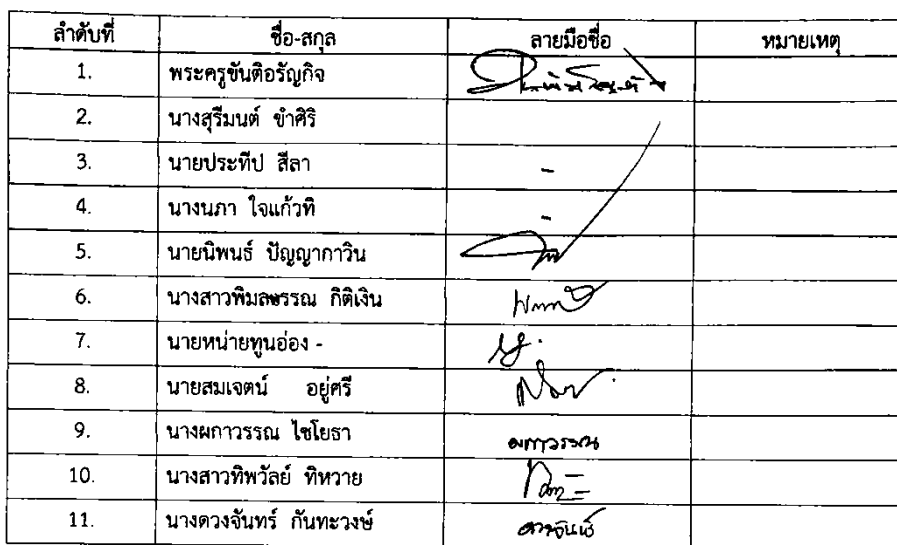 ลำดับที่ ชื่อ-สกุล ลายมือชื่อ หมายเหตุ
1. พระครูขันติอรัญกิจ
2. นางสุรีมนต์ ขำศิริ
3. นายประทีป สีลา -
4. นางนภา ใจแก้วทิ -
5. นายนิพนธ์ ปัญญากาวิน
6. นางสาวพิมลพรรณ กิติเงิน
7. นายหน่ายทูนอ่อง -
8. นายสมเจตน์ อยู่ศรี
9. นางผกาวรรณ ไชโยธา ผกาวรรณ
10. นางสาวทิพวัลย์ ทิหวาย
11. นางดวงจันทร์ กันทะวงษ์